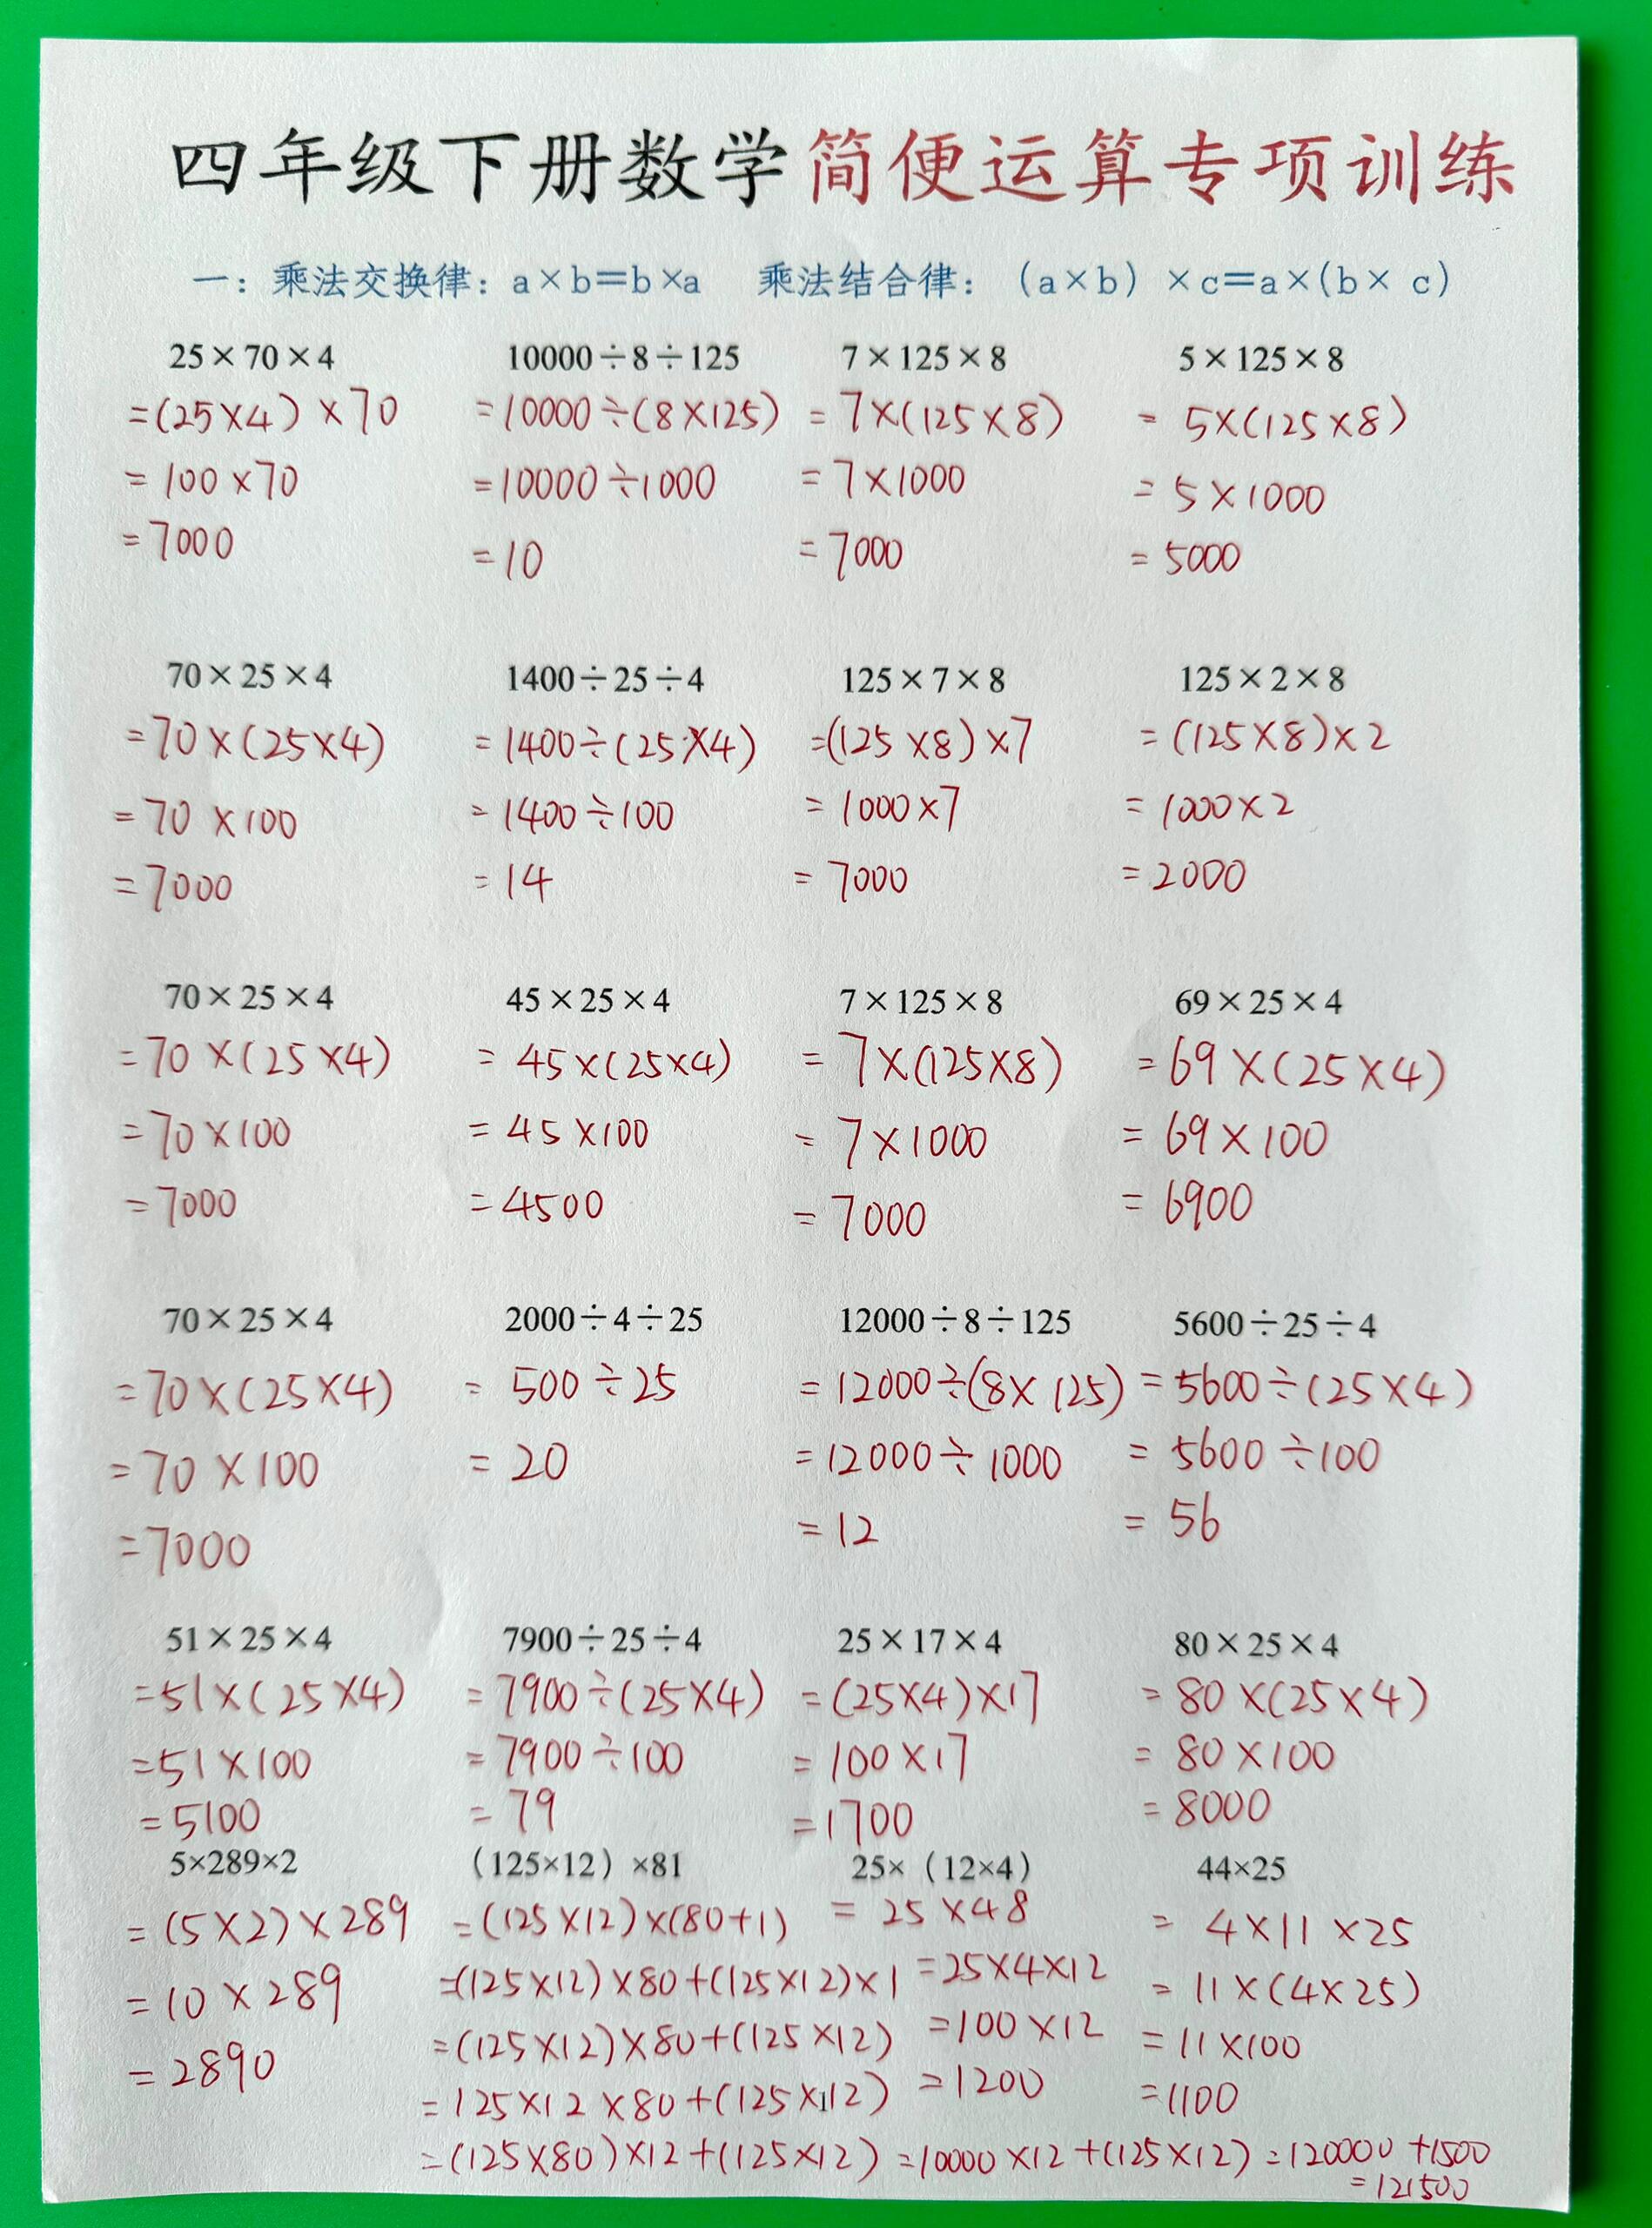 四年级下册数学简便运算专项训练
一：乘法交换律：a×b=b×a 乘法结合律：（a×b）×c=a×(b× c)
25×70×4
=(25×4)×70
=100×70
=7000
10000÷8÷125
=10000÷(8×125)
=10000÷1000
=10
7×125×8
=7×(125×8)
=7×1000
=7000
5×125×8
=5×(125×8)
=5×1000
=5000
70×25×4
=70×(25×4)
=70×100
=7000
1400÷25÷4
=1400÷(25×4)
=1400÷100
=14
125×7×8
=(125×8)×7
=1000×7
=7000
125×2×8
=(125×8)×2
=1000×2
=2000
70×25×4
=70×(25×4)
=70×100
=7000
45×25×4
=45×(25×4)
=45×100
=4500
7×125×8
=7×(125×8)
=7×1000
=7000
69×25×4
=69×(25×4)
=69×100
=6900
70×25×4
=70×(25×4)
=70×100
=7000
2000÷4÷25
=500÷25
=20
12000÷8÷125
=12000÷(8×125)
=12000÷1000
=12
5600÷25÷4
=5600÷(25×4)
=5600÷100
=56
51×25×4
=51×(25×4)
=51×100
=5100
7900÷25÷4
=7900÷(25×4)
=7900÷100
=79
25×17×4
=(25×4)×17
=100×17
=1700
80×25×4
=80×(25×4)
=80×100
=8000
5×289×2
=(5×2)×289
=10×289
=2890
（125×12）×81
=(125×12)×(80+1)
=(125×12)×80+(125×12)×1
=(125×12)×80+(125×12)
=125×12×80+(125×12)
=(125×80)×12+(125×12)=10000×12+(125×12)=120000+1500
=121500
25×（12×4）
=25×48
=25×4×12
=100×12
=1200
44×25
=4×11×25
=11×(4×25)
=11×100
=1100